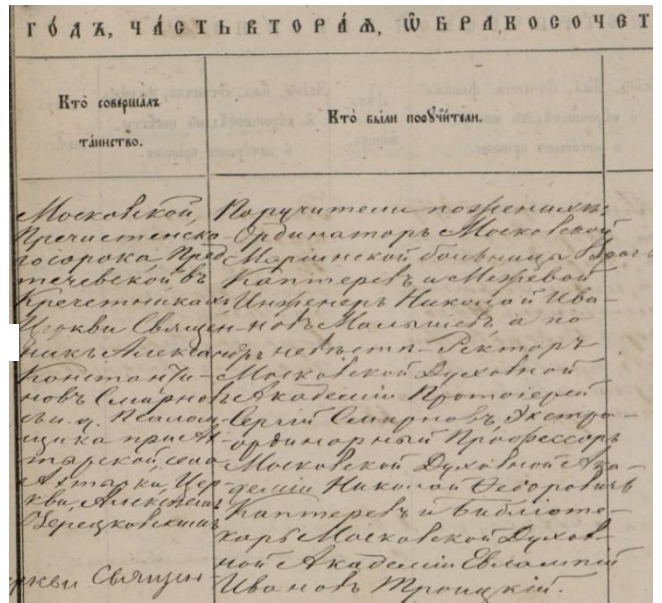 ГОДЪ, ЧАСТЬ ВТОРАЯ, Ѡ БРАКОСОЧЕТ
Кто совершалъ
таинство.
Кто были поручители.
Московской,
Пречистенска-
го сорока Пред
течевской въ
Кречетникахъ
Церкви Священ-
никъ Алексан
Константи-
новъ Смирновъ
съ и. д. Псалом-
щика при Ах-
тырской, села
Ахтырки, Цер-
кви, Алексѣемъ
Верецковскимъ
ркви Священ
Поручители по женихѣ:
Ординаторъ Московской
Маріинской больницы Врачъ
Каптеревъ и Межевой
Инженеръ Николай Ива-
новъ Малышевъ а по
невѣстѣ - Ректоръ
Московской Духовной
Академіи Протоіерей
Сергій Смирновъ, Экстра-
ординарный Профессоръ
Московской Духовной Ака-
деміи Николай Ѳедоровичъ
Каптеревъ и Библіоте-
карь Московской Духов-
ной Академіи Евлампій
Ивановъ Троицкій.